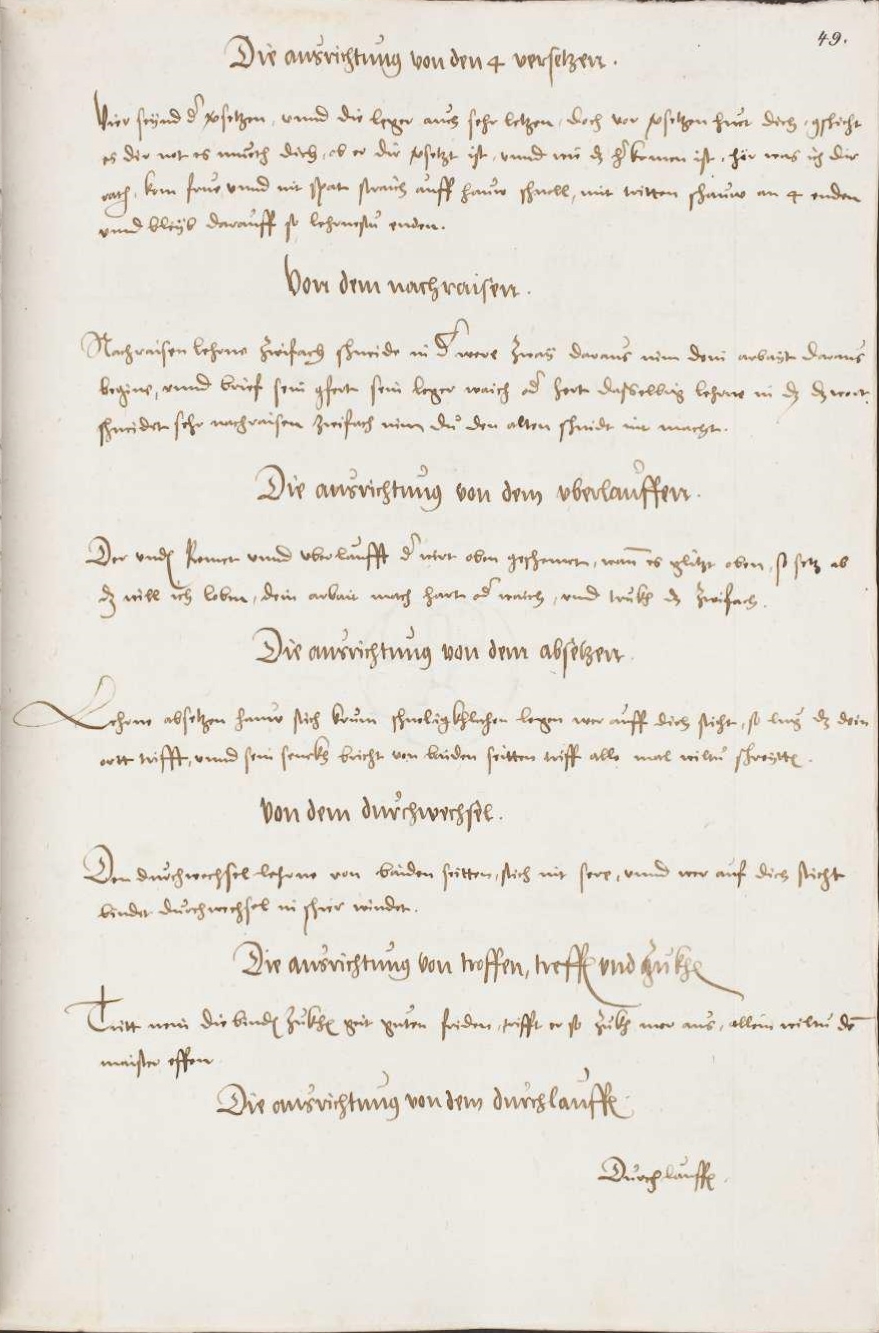 49.
Die ausrichtung von den 4 versetzen.
Vier seÿnd dʳ vsetzen, vnnd die leger auch sehr letzen, doch vor vsetzen huet dich, gschicht
es dir not es mueth dich, ob er dir vsetzt ist, vnnd wie dz hʳ komen ist, hör was ich dir
rath, kom frue vnnd nit spat straich auff hauw schnell, mit tritten schauw an 4 enden
vnnd bleÿb darauff so lehrnestu enden.
Von dem nachraisen.
Nachraisen lehrne zwifach schneide in dʳ were zwaÿ daraus nim dein arbaÿt daraus
begine, vnnd brief sein gfert sein leger waich odʳ hert dasselbig lehrne in dz dz wort
schneidet sehr nachraisen zwifach nim du den alten schnidt mit macht.
Die ausrichtung von dem vberlauffen.
Der vndʳ Remet vnnd vberlaufft dʳ wirt oben geschemet, wañ es glitzt oben, so setz ab
dz will ich loben, dein arbait mach hart odʳ waich, vnd truckh dz zwifach.
Die ausrichtung von dem absetzen.
Lehrne absetzen hauw stich krum schnelligkhlichen legen wer auff dich sticht, so lug dz dein
ortt trifft, vnnd sein bricht von baiden seitten triff alle mal wiltu schreÿttē.
Von dem durchwechsel.
Den durchwechsel lehrne von baiden seitten, stich mit sere, vnnd wer auf dich sticht
bindet durchwechsel in schier windet.
Die ausrichtung von troffen, treffē vnd zukhē
Tritt nein die bindē zukhē geit guten friden, trifft er so zukh mer aus, allein wiltu dē
maister effen
Die ausrichtung von dem durchlauffē.
Durchlauffē.